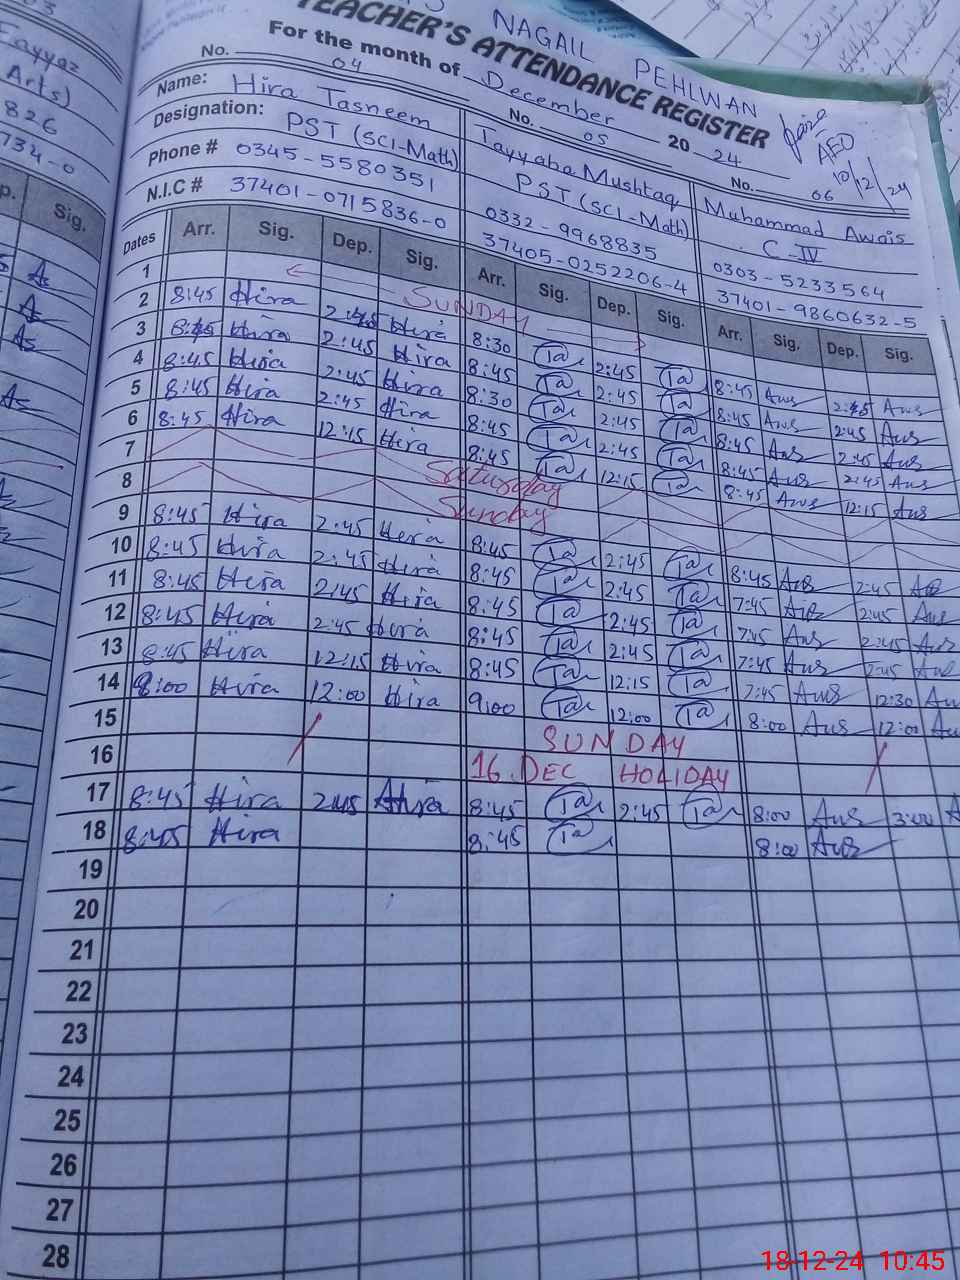 NAGAIL PEHLWAN
TEACHER'S ATTENDANCE REGISTER
For the month of December 2024
AEO
10/12/24
No. 04 No. 05 No. 06
Name: Hira Tasneem Tayyaba Mushtaq Muhammad Awais
Designation: PST (SCI-Math) PST (SCI-Math) C-IV
Phone # 0345-5580351 0332-9968835 0303-5233564
N.I.C # 37401-0715836-0 37405-0252206-4 37401-9860632-5
Dates Arr. Sig. Dep. Sig. Arr. Sig. Dep. Sig. Arr. Sig. Dep. Sig.
1 SUNDAY
2 8:45 Hira 2:45 Hira 8:30 Ta 2:45 Ta 8:45 Aws 2:45 Aws
3 8:45 Hira 2:45 Hira 8:45 Ta 2:45 Ta 8:45 Aws 2:45 Aws
4 8:45 Hira 2:45 Hira 8:30 Ta 2:45 Ta 8:45 Aws 2:45 Aws
5 8:45 Hira 2:45 Hira 8:45 Ta 2:45 Ta 8:45 Aws 2:45 Aws
6 8:45 Hira 12:15 Hira 8:45 Ta 12:15 Ta 8:45 Aws 12:15 Aws
7 Saturday
8 Sunday
9 8:45 Hira 2:45 Hira 8:45 Ta 2:45 Ta 8:45 Aws 2:45 Aws
10 8:45 Hira 2:45 Hira 8:45 Ta 2:45 Ta 7:45 Aws 2:45 Aws
11 8:45 Hira 2:45 Hira 8:45 Ta 2:45 Ta 7:45 Aws 2:45 Aws
12 8:45 Hira 2:45 Hira 8:45 Ta 2:45 Ta 7:45 Aws 2:45 Aws
13 8:45 Hira 12:15 Hira 8:45 Ta 12:15 Ta 7:45 Aws 12:30 Aw
14 8:00 Hira 12:00 Hira 9:00 Ta 12:00 Ta 8:00 Aws 12:00 Aw
15 SUNDAY
16 16.DEC HOLIDAY
17 8:45 Hira 2:45 Hira 8:45 Ta 2:45 Ta 8:00 Aws 3:00 A
18 8:45 Hira 8:45 Ta 8:00 Aws
19
20
21
22
23
24
25
26
27
28
03
Tayyaz
Arts)
826
734-0
p. Sig.
18-12-24 10:45